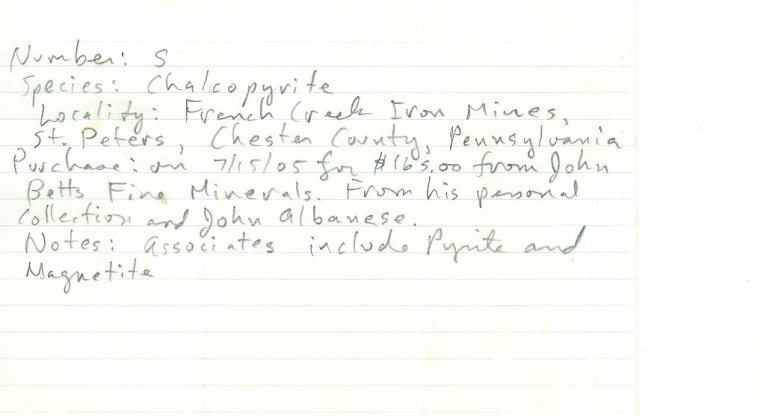 Number: S
Species: Chalcopyrite
Locality: French Creek Iron Mines,
St. Peters, Chester County, Pennsylvania
Purchase: on 7/15/05 for $165.00 from John
Betts Fine Minerals. From his personal
Collection and John Albanese.
Notes: Associates include Pyrite and
Magnetite